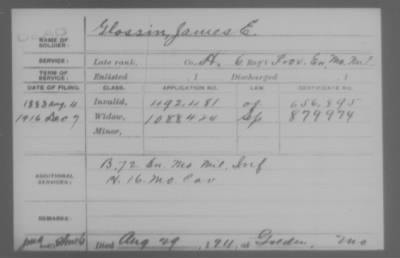 DEAD
NAME OF SOLDIER: Glossin, James E.
SERVICE: Late rank, Co. H, 6 Reg't Prov. En. Mo. Mil.
TERM OF SERVICE: Enlisted , 1 Discharged , 1
DATE OF FILING. CLASS. APPLICATION NO. LAW. CERTIFICATE NO.
1883 Aug. 4 Invalid, 492.481 656.895
1916 Dec 7 Widow, 1088424 879974
Minor,
ADDITIONAL SERVICES: B. 72 En. Mo Mil. Inf
H. 16. Mo. Cav
REMARKS:
Died Aug 29, 1911, at Golden, Mo